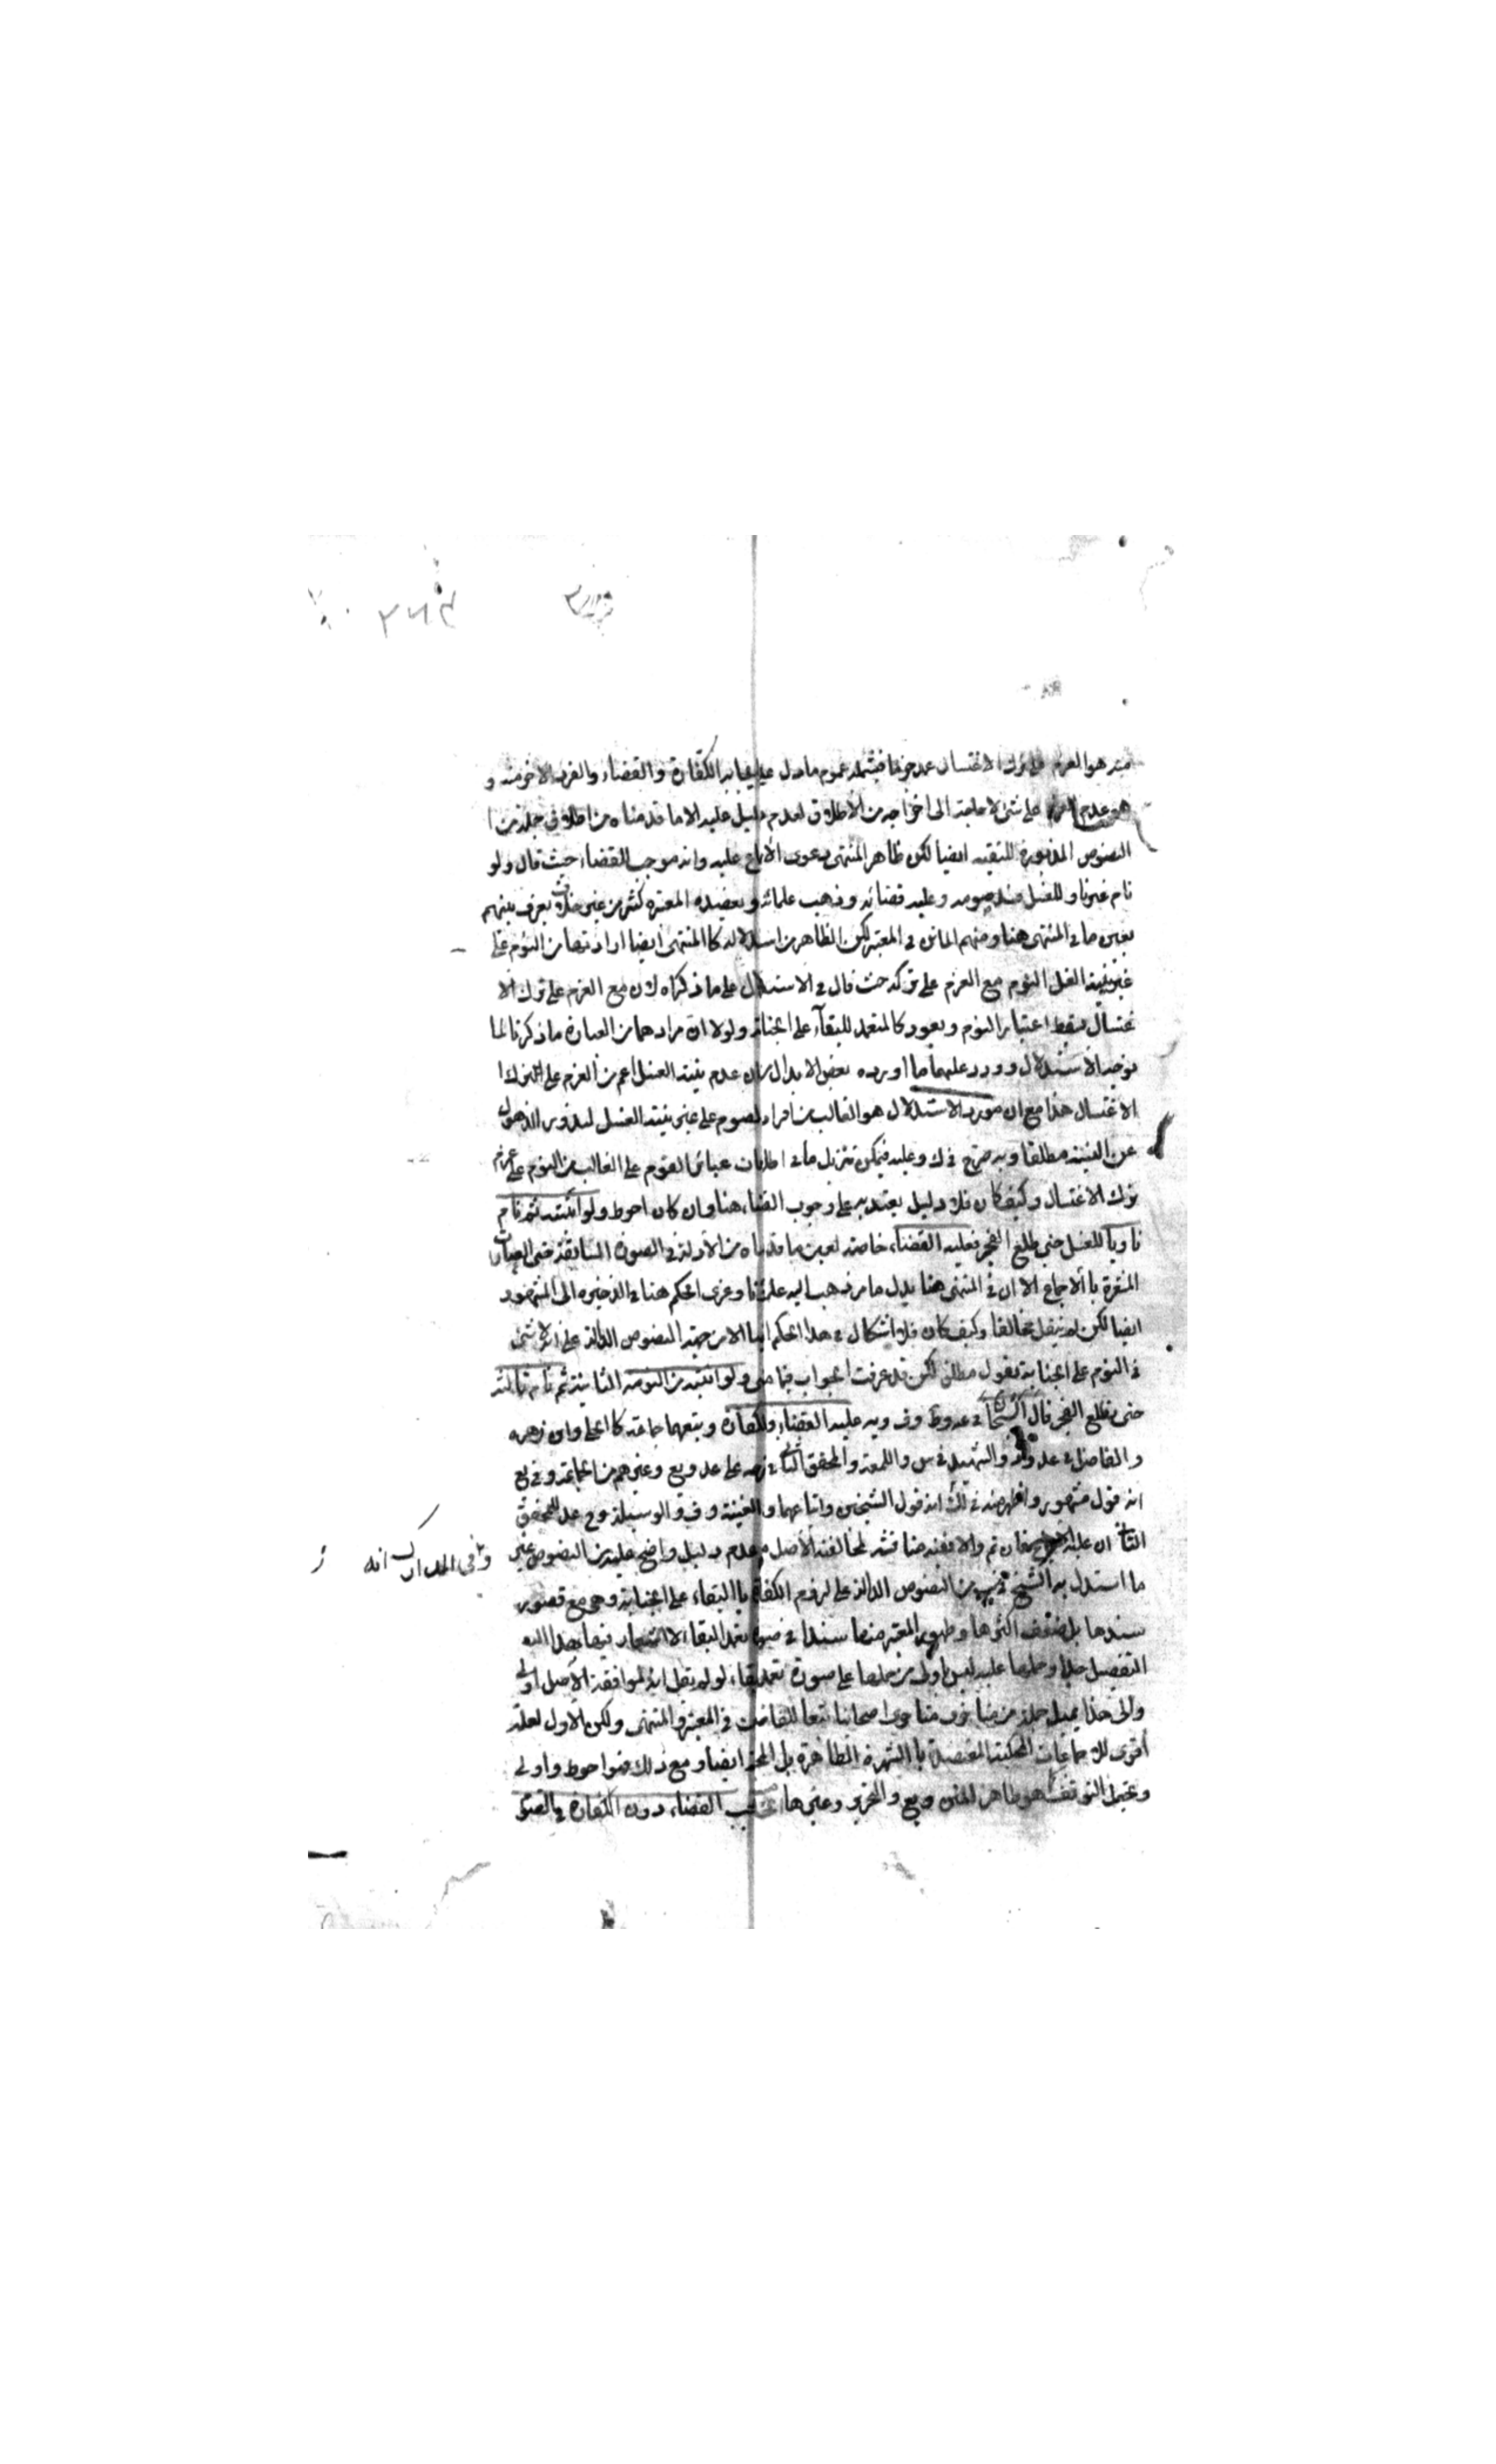 منه هو العزم على ترك الاغتسال عمد جزما فيشمله عموم ما دل على ايجابه الكفارة والقضاء والفرد الاخر منه و
هو عدم العزم على شئ لا حاجة الى اخراجه من الاطلاق لعدم دليل عليه الا ما قدمناه من اطلاق جملة من
النصوص المزبورة للتقييد ايضا لكن ظاهر المنتهى دعوى الاجماع عليه وانه موجب للقضاء حيث قال ولو
نام غير ناو للغسل فسد صومه وعليه قضائه وذهب علمائنا ويعضده المعتبر كثير من غير خلاف يعرف بينهم
بعين ما في المنتهى هنا ومنهم الماتن في المعتبر لكن الظاهر من استدلاله كالمنتهى ايضا ارادتهما من النوم على
غير نية الغسل النوم مع العزم على تركه حيث قال في الاستدلال على ما ذكراه لان مع العزم على ترك الا
غتسال يسقط اعتبار النوم ويعود كالمتعمد للبقاء على الجنابة ولولا ان مرادهما من العبارة ما ذكرنا لما
توجه الاستدلال وورد عليهما ما اورده بعض الابدال بان عدم نية الغسل اعم من العزم على ترك
الاغتسال هذا مع ان مورد الاستدلال هو الغالب من افراد الصوم على غير نية الغسل لندور الذهول
عن النية مطلقا وبه صرح في ك وعليه فيمكن تنزيل ما في اطلاقات عبائر القوم على الغالب من النوم على عزم
ترك الاغتسال وكيف كان فلا دليل يعتد به على وجوب القضاء هنا وان كان احوط ولو انتبه ثم نام
ناويا للغسل حتى طلع الفجر فعليه القضاء خاصة بعين ما قدمناه من الادلة في الصورة السابقة حتى العبارات
المشعرة بالاجماع الا ان في المنتهى هنا بدل ما مر ذهب اليه علمائنا وعزى الحكم هنا في الذخيره الى المشهور
ايضا لكن لم ينقل مخالفا وكيف كان فلا اشكال في هذا الحكم ايضا الا من جهة النصوص الدالة على انه لا شئ
في النوم على الجنابة بقول مطلق لكن قد عرفت الجواب فيما مضى ولو انتبه من النومة الثانية ثم نام ثالثة
حتى يطلع الفجر قال الشيخان في عد وط وف ويه عليه القضاء والكفارة وتبعهما جماعة كالحلي وابن زهره
والفاضل في عد والشهيد في س واللمعة والمحقق الثاني في على عد ويع وغيرهم من الجماعة وفي يع
انه قول مشهور واظهر منه في لك انه قول الشيخين واتباعهما والغنية وف والوسيلة وح عد للمحقق
الثاني ان عليه الاجماع فان تم والا ففيه مناقشة لمخالفته الاصل وعدم دليل واضح عليه من النصوص غير
وفي المدارك انه
ما استدل به الشيخ في يب من النصوص الدالة على لزوم الكفارة بالبقاء على الجنابة وهي مع قصور
سندها بل ضعف اكثرها وظهور المعتبر منها سندا في صورة تعمد البقاء لا اشعار فيها بهذا
التفصيل جدا وحملها عليه ليس باولى من حملها على صورة تعمد البقاء لو لم يقل انه لموافقة الاصل اولى
والى هذا يميل جملة من متاخري متاخرى اصحابنا تبعا للفاضلين في المعتبر والمنتهى ولكن الاول لعله
أقوى للاجماعات المحكية المعتضدة بالشهرة الظاهرة بل المحكية ايضا ومع ذلك فهو احوط واولى
ويحتمل التوقف كما هو ظاهر المتن ويع والتحرير وغيرها يجب القضاء دون الكفارة في الصوم